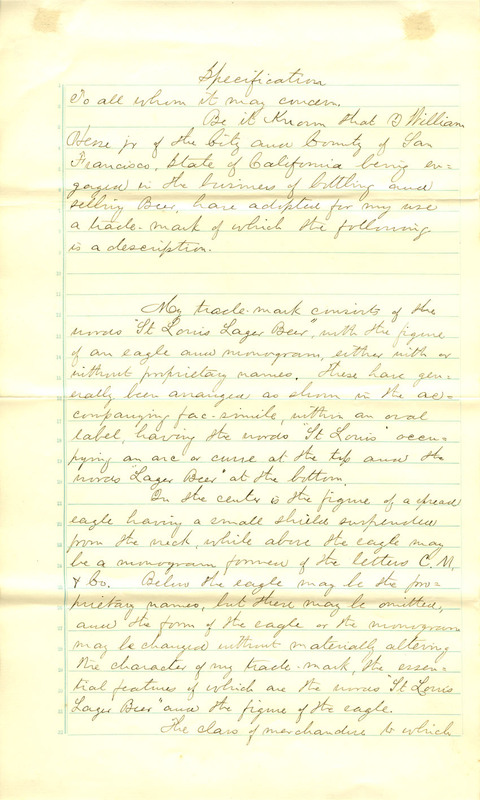 Specification
To all whom it may concern.
Be it Known that I William
Besse jr of the City and County of San
Francisco, State of California being en=
gaged in the business of bottling and
selling Beer, have adopted for my use
a trade-mark of which the following
is a description.
My trade-mark consists of the
words "St Louis Lager Beer", with the figure
of an eagle and monogram, either with or
without proprietary names. These have gen=
erally been arranged as shown in the ac=
companying fac-simile, within an oval
label, having the words "St Louis" occu=
pying an arc or curve at the top and the
words "Lager Beer" at the bottom.
In the center is the figure of a spread
eagle having a small shield suspended
from the neck, while above the eagle may
be a monogram formed of the letters C. M.
& Co. Below the eagle may be the pro=
prietary names, but these may be omitted,
and the form of the eagle or the monogram
may be changed without materially altering
the character of my trade-mark, the essen=
tial features of which are the words "St Louis
Lager Beer" and the figure of the eagle.
The class of merchandise to which